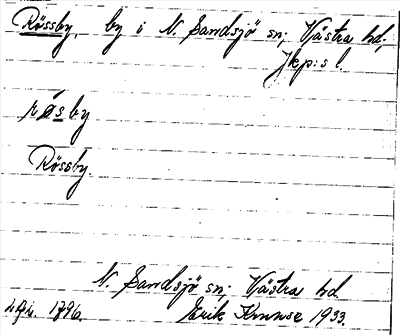 Rössby, by i N. Sandsjö sn; Västra hd,
Jkp:s l.
røsby
Rössby.
N. Sandsjö sn; Västra hd.
1796. Erik 1933.